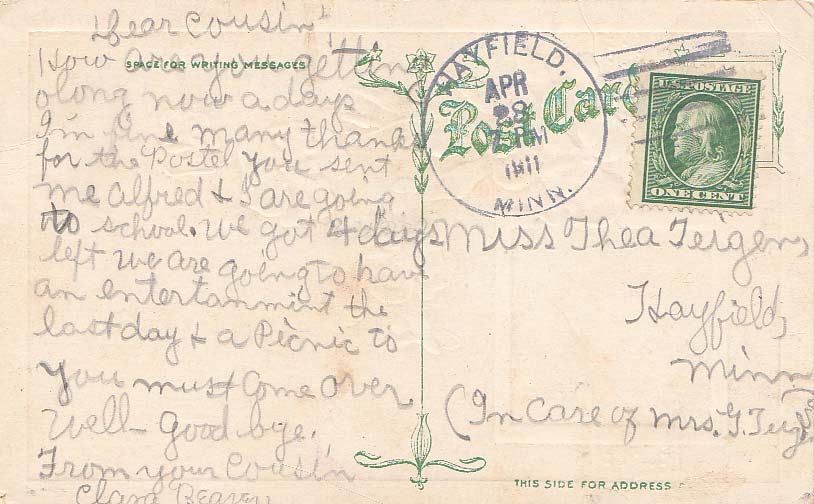 Dear Cousin!
SPACE FOR WRITING MESSAGES
How are you getting
along now a days
I'm fine many thanks
for the Postel you sent
me Alfred & I are going
to school. We got 4 days
left we are going to have
an entertanmint the
last day & a Picnic to
You must Come over
Well- Good bye.
From your Cousin
Clara
HAYFIELD,
APR
28
PM
1911
MINN.
Post Card
U.S. POSTAGE
ONE CENT
Miss Thea Teigen,
Hayfield,
Minn
(In Care of Mrs. G. Teig
THIS SIDE FOR ADDRESS